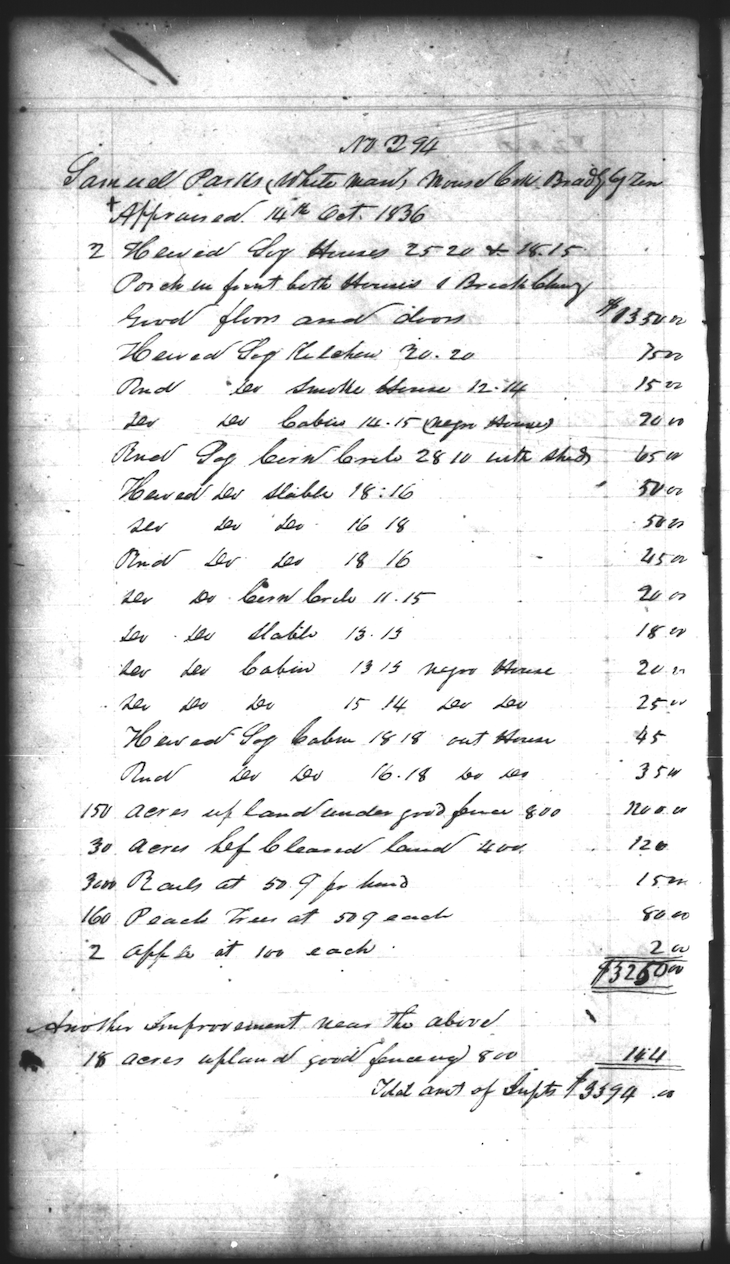 No 294
Samuel Parks (White man) Mouse Crk Bradly Cy Ten
+ Appraised 14th Oct. 1836
2 Hewed Log Houses 25 20 & 18.15
Porch in front both Houses 1 Brick Chimy
Good floors and doors $1350 00
Hewed Log Kitchen 20.20 75 00
Rnd Do Smoke House 12.14 15 00
Do Do Cabin 14.15 (negro House) 20 00
Rnd Log Corn Crib 28 10 with Sheds 65 00
Hewed Do Stable 18:16 50 00
Do Do Do 16 18 50 00
Rnd Do Do 18 16 45 00
Do Do Corn Crib 11.15 20 00
Do Do Stable 13.13 18 00
Do Do Cabin 13 13 negro House 20 00
Do Do Do 15 14 Do Do 25 00
Hewed Log Cabin 18 18 out House 45
Rnd Do Do 16.18 Do Do 35 00
150 Acres upland under good fence 800 1200.00
30 Acres Cleared land 400 120
3000 Rails at 50 ₵ pr hund 15 00
160 Peach Trees at 50 ₵ each 80 00
2 App Do at 100 each 2 00
$3250 00
Another Improvement near the above
18 acres upland good fencing 800 144
Total amt of Impts $3394.00